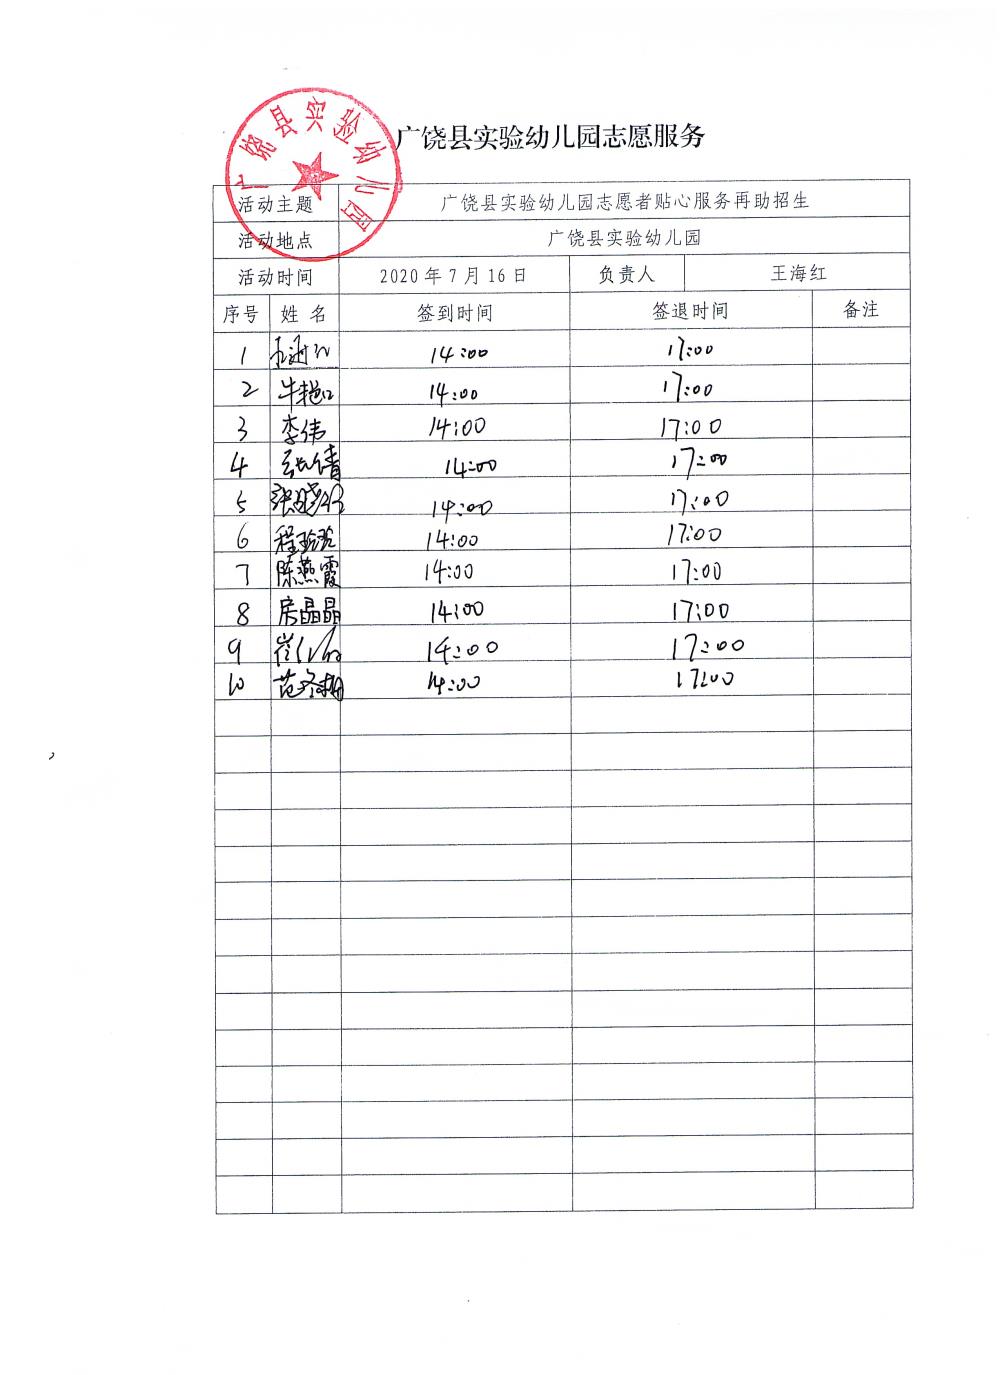 广饶县实验幼儿园
广饶县实验幼儿园志愿服务
活动主题 广饶县实验幼儿园志愿者贴心服务再助招生
活动地点 广饶县实验幼儿园
活动时间 2020年7月16日 负责人 王海红
序号 姓名 签到时间 签退时间 备注
1 14:00 17:00
2 牛艳红 14:00 17:00
3 李伟 14:00 17:00
4 张倩 14:00 17:00
5 张晓 14:00 17:00
6 程 14:00 17:00
7 陈燕霞 14:00 17:00
8 房晶晶 14:00 17:00
9 崔 14:00 17:00
10 范冬梅 14:00 17:00